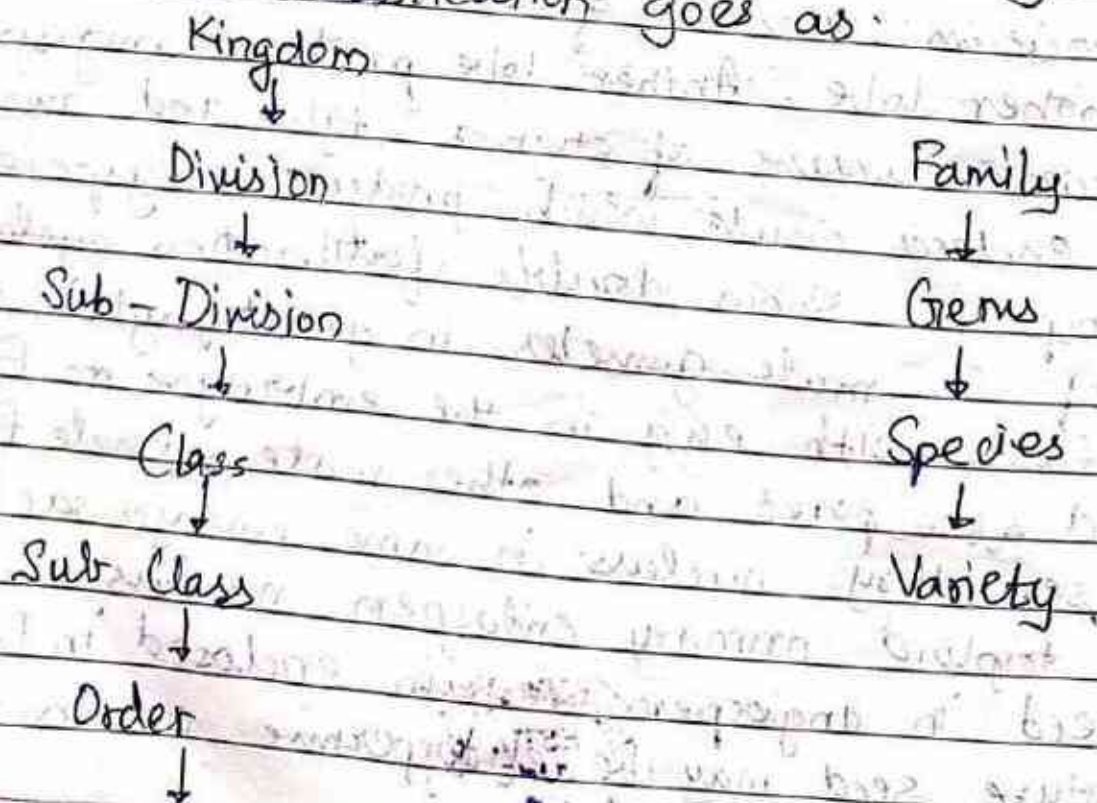 goes as
Kingdom
↓
Division
↓
Sub - Division
↓
Class
↓
Sub Class
↓
Order
↓
Family
↓
Genus
↓
Species
↓
Variety.